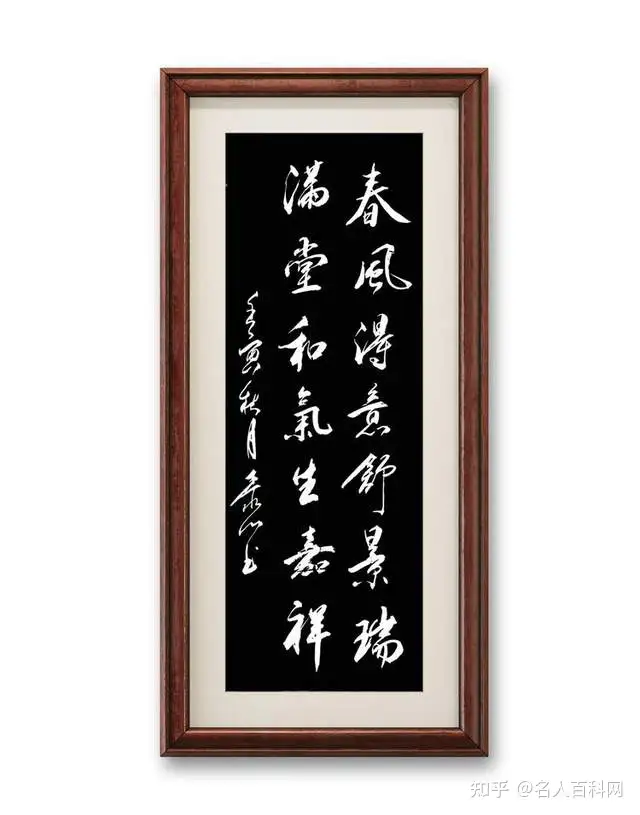 春風得意舒景瑞
滿堂和氣生嘉祥
壬寅秋月
书
知乎 @名人百科网